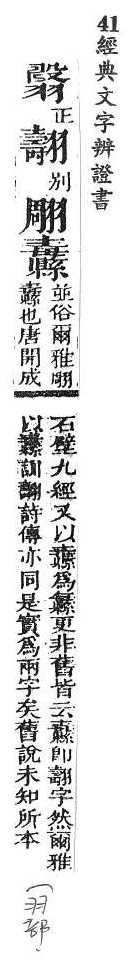 41經典文字辨證書
翳正翿別𦒺纛
並俗爾雅翢
纛也唐開成
石壁九經又以纛爲翿更非舊皆云纛卽翿字然爾雅
以纛訓翿詩傳亦同是實爲兩字矣舊說未知所本
(羽部)